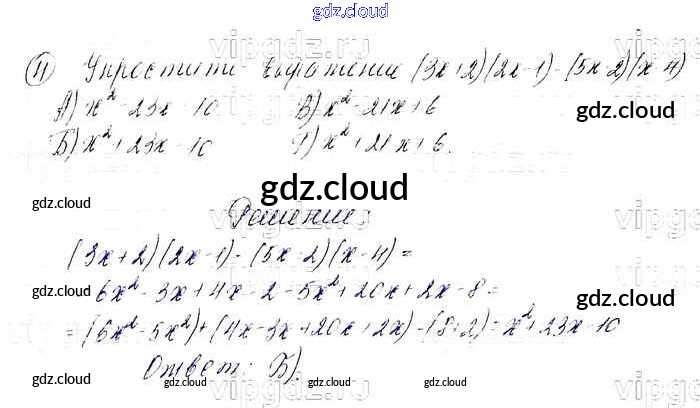 gdz.cloud
11 Упростити выражение (3x+2)(2x-1)-(5x-2)(x-4)
А) x² - 23x - 10 В) x² - 21x + 6
Б) x² + 23x - 10 Г) x² + 21x + 6.
gdz.cloud
gdz.cloud
gdz.cloud
Решение:
(3x+2)(2x-1)-(5x-2)(x-4)=
gdz.cloud
6x² - 3x + 4x - 2 - 5x² + 20x + 2x - 8 =
gdz.cloud
= (6x² - 5x²) + (4x - 3x + 20x + 2x) - (8+2) = x² + 23x - 10
Ответ: Б).
gdz.cloud gdz.cloud gdz.cloud gdz.cloud gdz.cloud